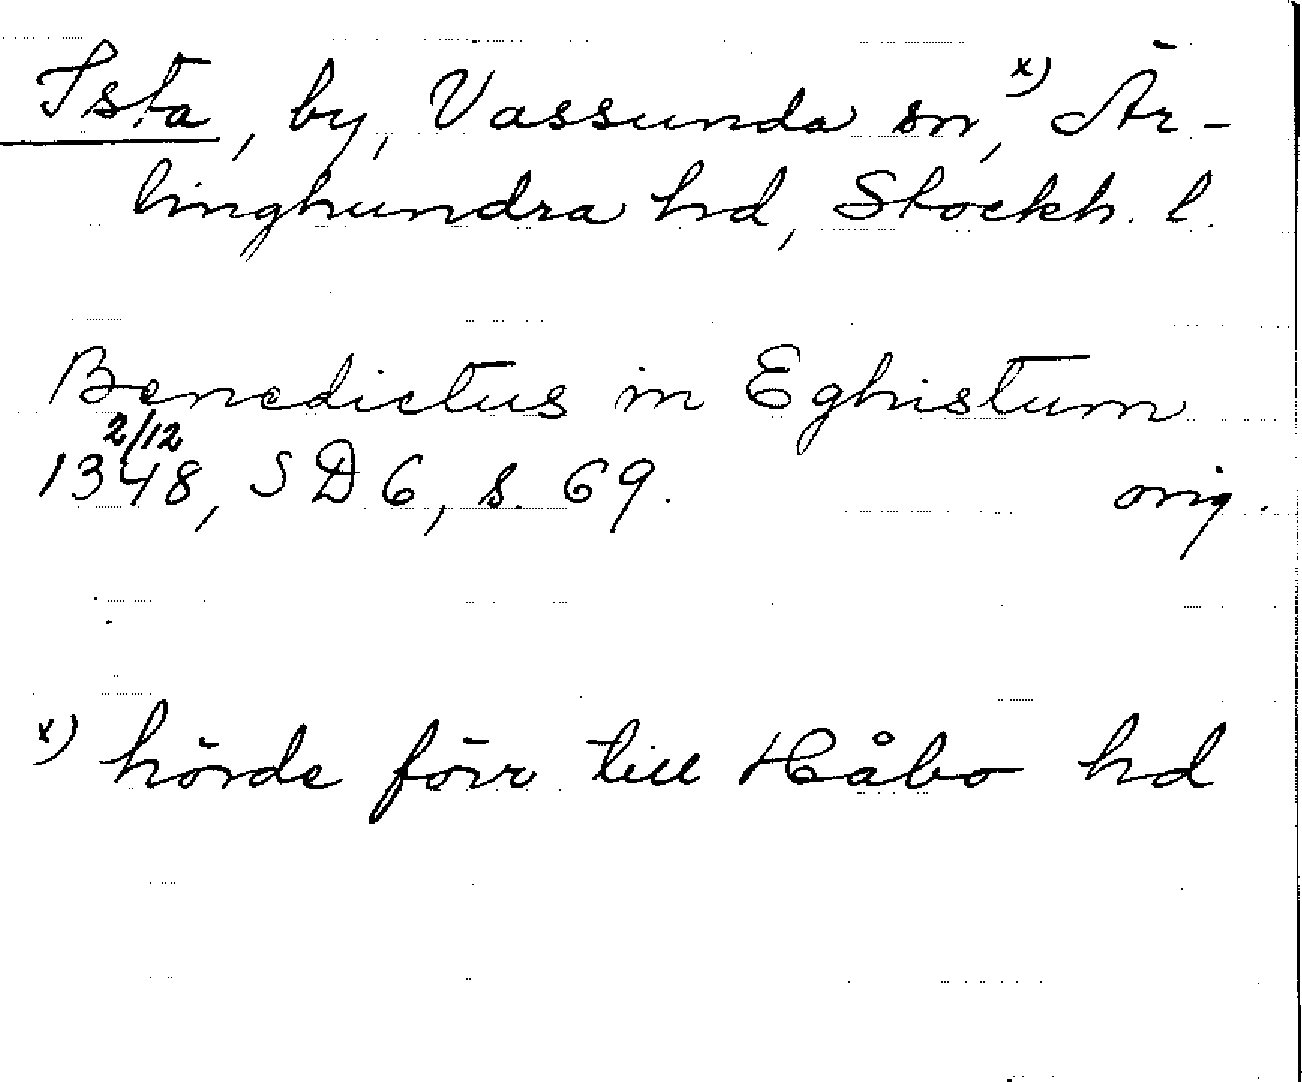 Ista, by, Vassunda sn, x) Är-
linghundra hd, Stockh. l.
Benedictus in Eghistum
2/12
1348, SD 6, s. 69. orig.
x) hörde förr till Håbo hd